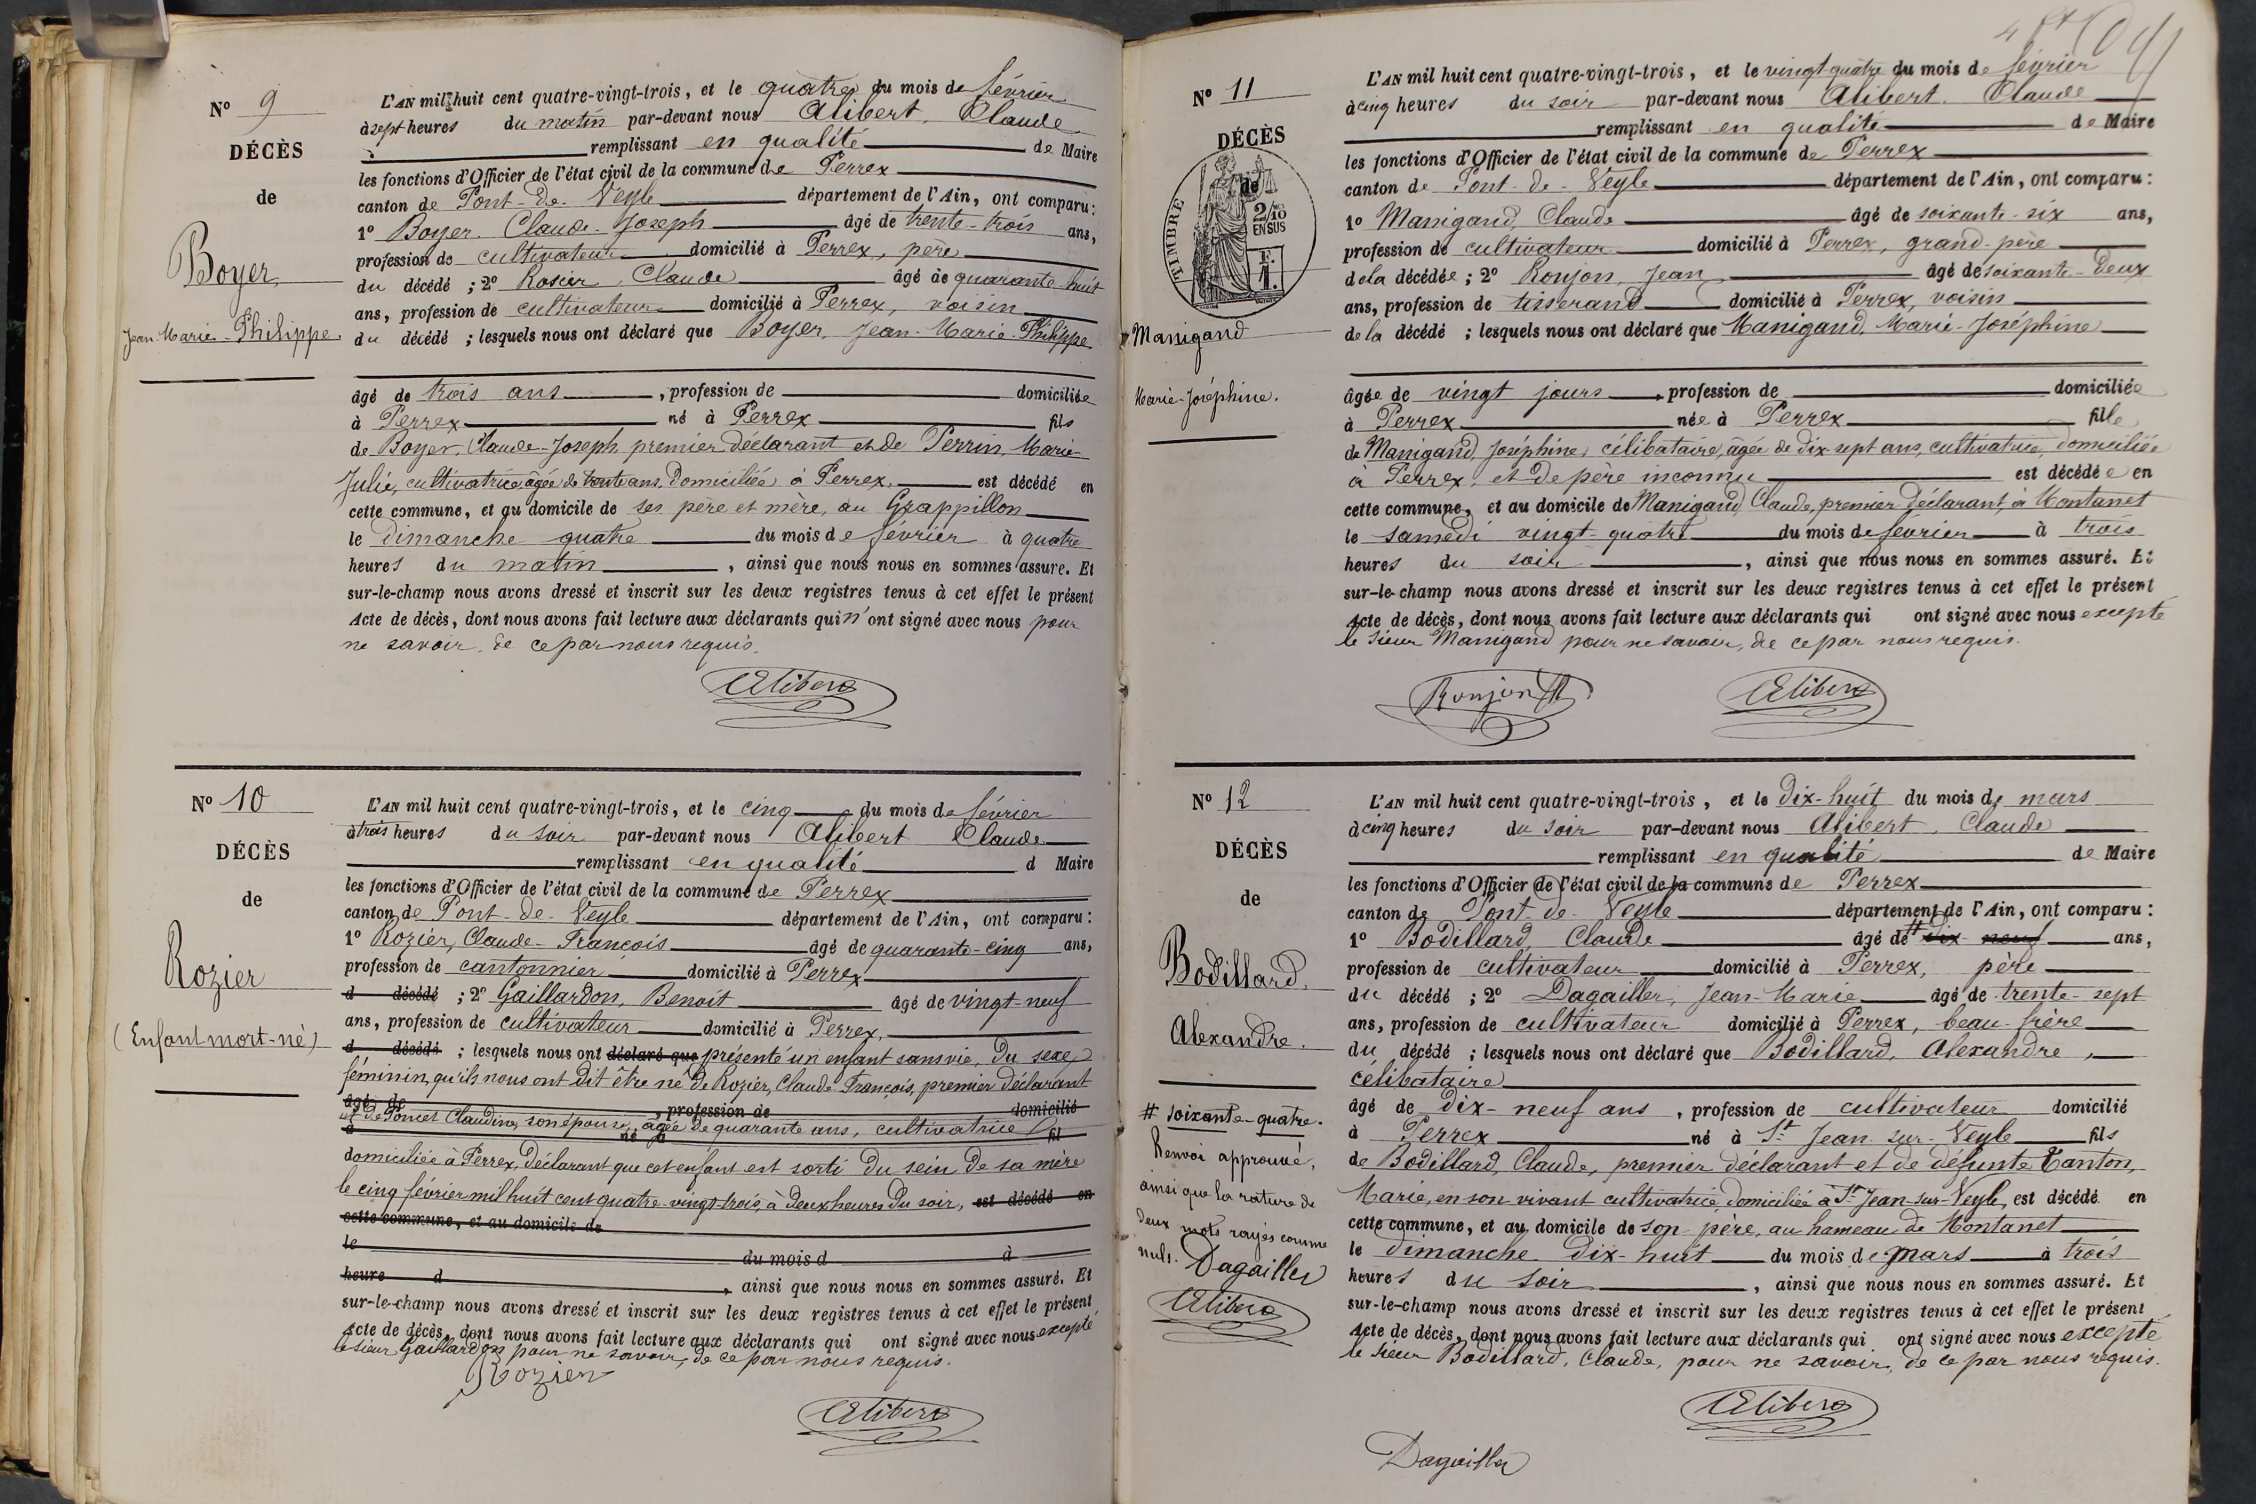 N° 9
DÉCÈS
de
Boyer,
Jean-Marie-Philippe
L'AN mil huit cent quatre-vingt-trois, et le quatre du mois de février
à sept heures du matin par-devant nous Alibert, Claude
remplissant en qualité de Maire
les fonctions d'Officier de l'état civil de la commune de Perrex
canton de Pont-de-Veyle département de l'Ain, ont comparu :
1° Boyer Claude-Joseph âgé de trente-trois ans,
profession de cultivateur domicilié à Perrex, père
du décédé ; 2° Rosier, Claude âgé de quarante-huit
ans, profession de cultivateur domicilié à Perrex, voisin
du décédé ; lesquels nous ont déclaré que Boyer, Jean-Marie-Philippe
âgé de trois ans, profession de domiciliée
à Perrex né à Perrex fils
de Boyer, Claude-Joseph premier déclarant et de Perrin, Marie-
Julie, cultivatrice, âgée de trente ans, domiciliée à Perrex, est décédé en
cette commune, et au domicile de ses père et mère, au Grappillon
le Dimanche quatre du mois de février à quatre
heures du matin, ainsi que nous nous en sommes assuré. Et
sur-le-champ nous avons dressé et inscrit sur les deux registres tenus à cet effet le présent
Acte de décès, dont nous avons fait lecture aux déclarants qui n'ont signé avec nous pour
ne savoir, de ce par nous requis.
Alibert
N° 10
DÉCÈS
de
Rozier
(Enfant mort-né)
L'AN mil huit cent quatre-vingt-trois, et le cinq du mois de février
à trois heures du soir par-devant nous Alibert Claude
remplissant en qualité d Maire
les fonctions d'Officier de l'état civil de la commune de Perrex
canton de Pont-de-Veyle département de l'Ain, ont comparu :
1° Rozier, Claude-François âgé de quarante-cinq ans,
profession de cantonnier domicilié à Perrex
d décédé ; 2° Gaillardon, Benoît âgé de vingt-neuf
ans, profession de cultivateur domicilié à Perrex,
d décédé ; lesquels nous ont déclaré que présenté un enfant sans vie, du sexe
féminin, qu'ils nous ont dit être né de Rozier, Claude-François, premier déclarant
âgé de, profession de domicilié
et de Poncet Claudine, son épouse, âgée de quarante ans, cultivatrice
à né à fil
domiciliée à Perrex, déclarant que cet enfant est sorti du sein de sa mère
le cinq février mil huit cent quatre-vingt-trois, à deux heures du soir, est décédé en
cette commune, et au domicile de
le du mois d à
heure d, ainsi que nous nous en sommes assuré. Et
sur-le-champ nous avons dressé et inscrit sur les deux registres tenus à cet effet le présent
Acte de décès, dont nous avons fait lecture aux déclarants qui ont signé avec nous excepté
le sieur Gaillardon pour ne savoir, de ce par nous requis.
Rozier
Alibert
N° 11
DÉCÈS
de
TIMBRE
2/10
EN SUS
Manigand
Marie-Joséphine.
L'AN mil huit cent quatre-vingt-trois, et le vingt-quatre du mois de février
à cinq heures du soir par-devant nous Alibert, Claude
remplissant en qualité de Maire
les fonctions d'Officier de l'état civil de la commune de Perrex
canton de Pont-de-Veyle département de l'Ain, ont comparu :
1° Manigand, Claude âgé de soixante-six ans,
profession de cultivateur domicilié à Perrex, grand-père
de la décédée ; 2° Roujon, Jean âgé de soixante-deux
ans, profession de tisserand domicilié à Perrex, voisin
de la décédé ; lesquels nous ont déclaré que Manigand, Marie-Joséphine
âgée de vingt jours, profession de domiciliée
à Perrex née à Perrex fille
de Manigand, Joséphine, célibataire, âgée de dix-sept ans, cultivatrice, domiciliée
à Perrex, et de père inconnu est décédée en
cette commune, et au domicile de Manigand, Claude, premier déclarant, à Montanet
le samedi vingt-quatre du mois de février à trois
heures du soir, ainsi que nous nous en sommes assuré. Et
sur-le-champ nous avons dressé et inscrit sur les deux registres tenus à cet effet le présent
Acte de décès, dont nous avons fait lecture aux déclarants qui ont signé avec nous excepté
le sieur Manigand pour ne savoir, de ce par nous requis.
Roujon
Alibert
N° 12
DÉCÈS
de
Bodillard.
Alexandre.
# soixante-quatre.
Renvoi approuvé,
ainsi que la rature de
deux mots rayés comme
nuls. Dagailler
Alibert
L'AN mil huit cent quatre-vingt-trois, et le dix-huit du mois de mars
à cinq heures du soir par-devant nous Alibert, Claude
remplissant en qualité de Maire
les fonctions d'Officier de l'état civil de la commune de Perrex
canton de Pont-de-Veyle département de l'Ain, ont comparu :
1° Bodillard, Claude âgé de # dix-neuf ans,
profession de cultivateur domicilié à Perrex, père
du décédé ; 2° Dagailler, Jean-Marie âgé de trente-sept
ans, profession de cultivateur domicilié à Perrex, beau-frère
du décédé ; lesquels nous ont déclaré que Bodillard, Alexandre,
célibataire
âgé de dix-neuf ans, profession de cultivateur domicilié
à Perrex né à St Jean-sur-Veyle fils
de Bodillard, Claude, premier déclarant et de défunte Tanton,
Marie, en son vivant cultivatrice, domiciliée à St Jean-sur-Veyle, est décédé en
cette commune, et au domicile de son père, au hameau de Montanet
le dimanche dix-huit du mois de mars à trois
heures du soir, ainsi que nous nous en sommes assuré. Et
sur-le-champ nous avons dressé et inscrit sur les deux registres tenus à cet effet le présent
Acte de décès, dont nous avons fait lecture aux déclarants qui ont signé avec nous excepté
le sieur Bodillard, Claude, pour ne savoir, de ce par nous requis.
Alibert
Dagailler